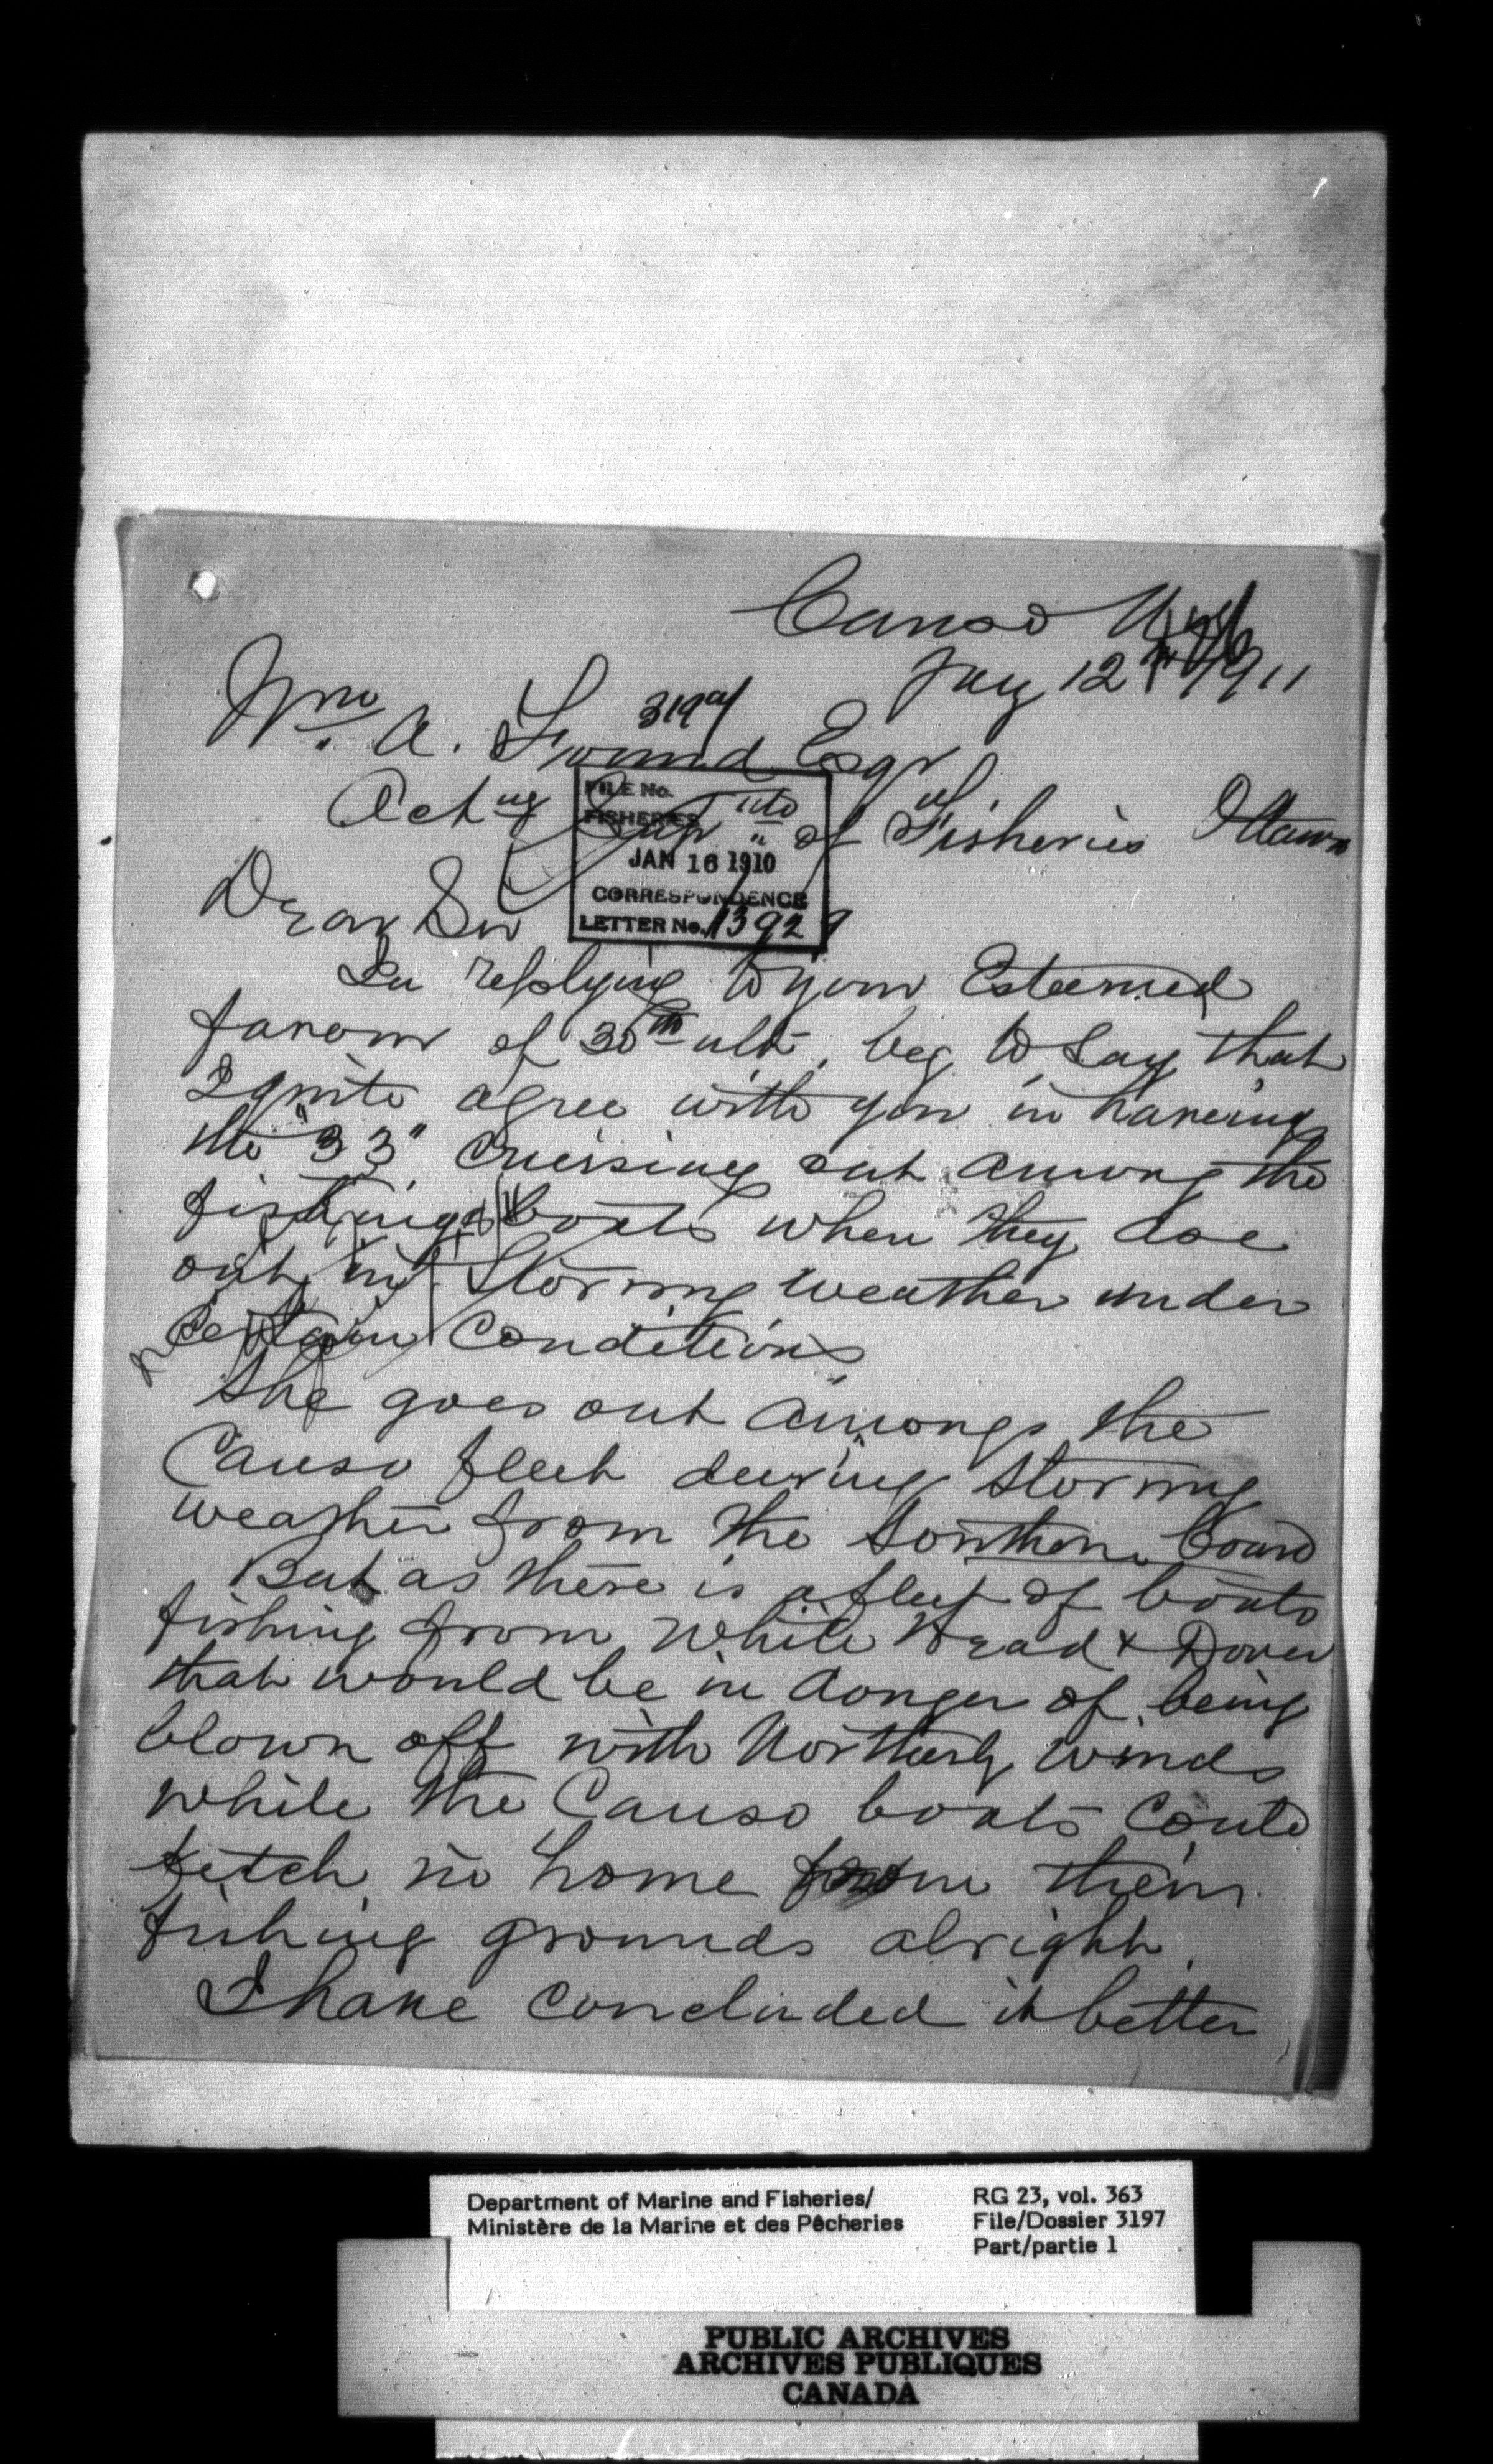 Canso N.S.
Jany 12th 1911
Wm. A. Found Esqr
3197
Actng Supt of Fisheries Ottawa
FILE No.
FISHERIES
JAN 16 1910
CORRESPONDENCE
LETTER No. 13929
Dear Sir
In replying to your Esteemed
favour of 30th ult. beg to say that
I quite agree with you in haveing
the "33" Cruising out among the
fishing boats when they are
out in Stormy weather under
Certain Conditions
She goes out amongs the
Canso fleet during Stormy
weather from the Southern board
But as there is a fleet of boats
fishing from White Head & Dover
that would be in danger of being
blown off with Northerly winds
while the Canso boats Could
fetch in home from their
fishing grounds alright
I have Concluded it better
Department of Marine and Fisheries/
Ministère de la Marine et des Pêcheries
RG 23, vol. 363
File/Dossier 3197
Part/partie 1
PUBLIC ARCHIVES
ARCHIVES PUBLIQUES
CANADA